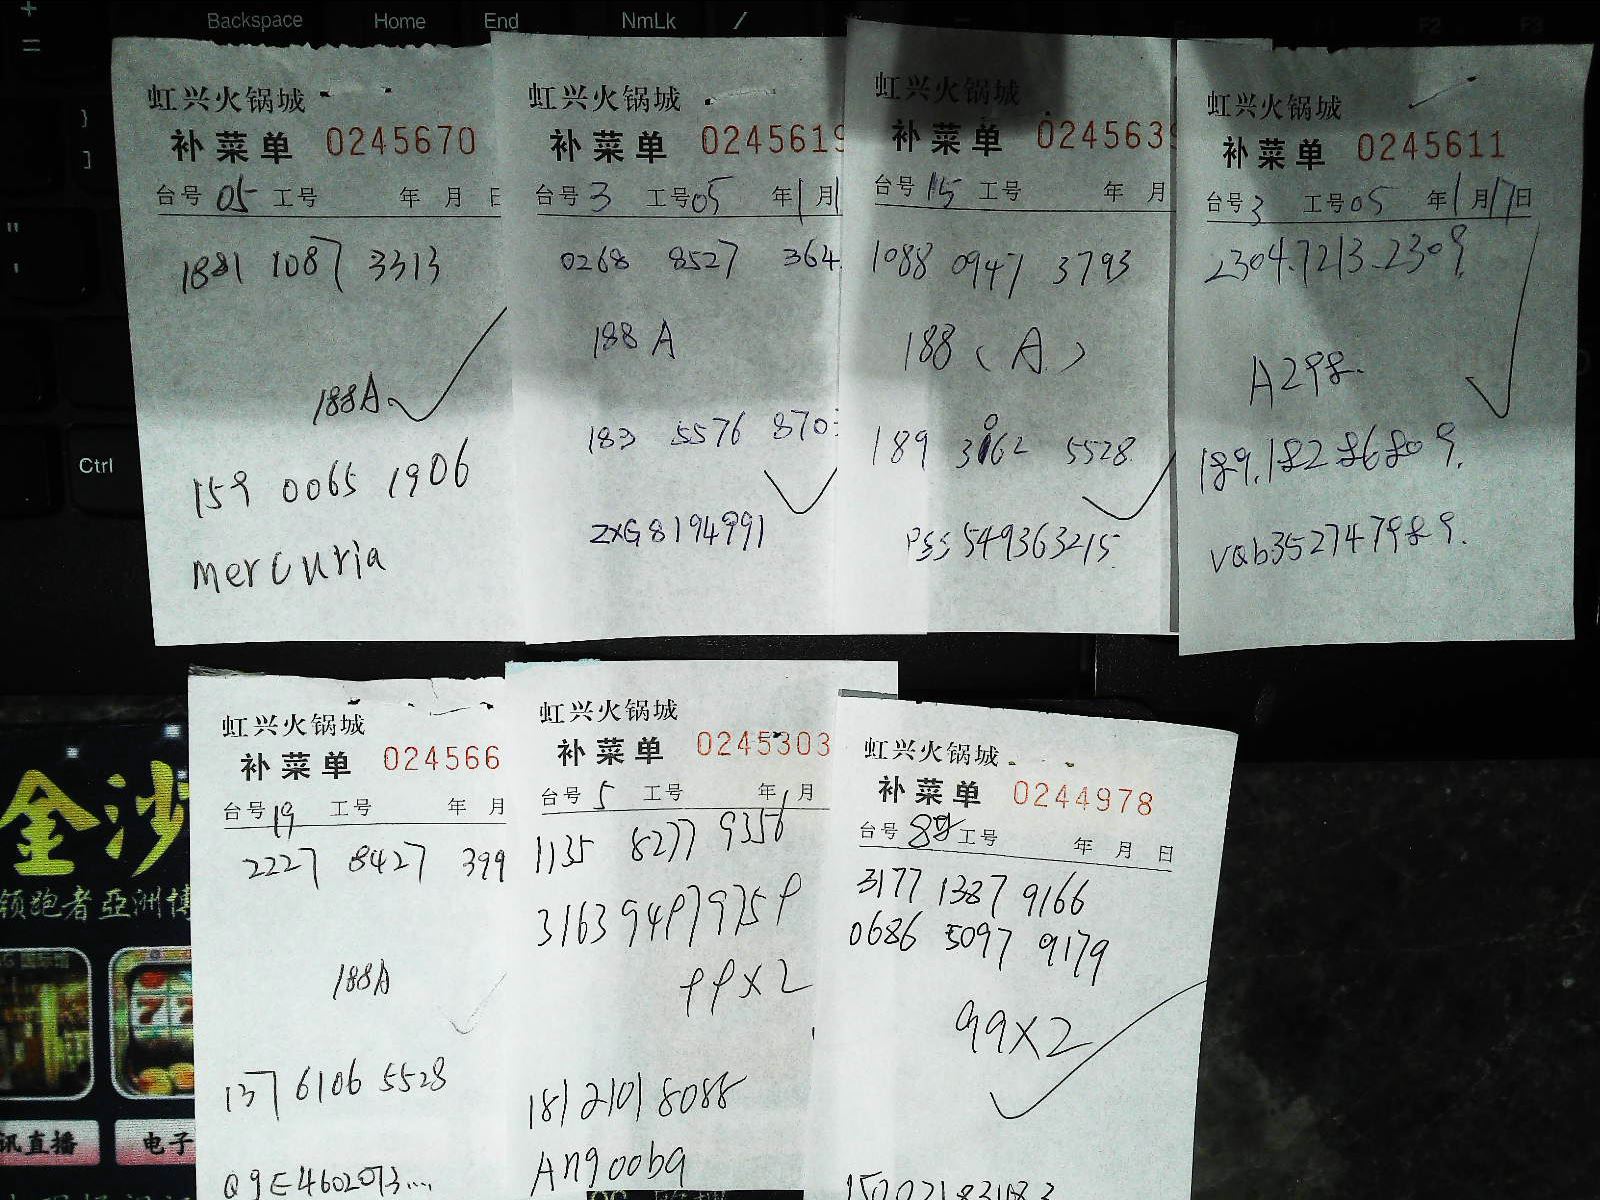 Backspace Home End NmLk /
Ctrl
虹兴火锅城
补菜单 0245670
台号 05 工号 年 月
1881 1087 3313
188A
159 0065 1906
mercuria
虹兴火锅城
补菜单 0245619
台号 3 工号 05 年 1 月 1
0268 8527 364
188 A
183 5576 870
ZXG8194991
虹兴火锅城
补菜单 024563
台号 15 工号 年 月
1088 0947 3793
188 (A)
189 3162 5528
PSS549363215
虹兴火锅城
补菜单 0245611
台号 3 工号 05 年 1 月 17 日
2304.7213.2309.
A298.
189.182 8680 9.
VQb352747989.
虹兴火锅城
补菜单 024566
台号 19 工号 年 月
2227 8427 399
188A
137 6106 5528
虹兴火锅城
补菜单 0245303
台号 5 工号 年 月
1135 8277 9356
3163 9497 9759
99X2
181 2101 8088
Angooba
虹兴火锅城
补菜单 0244978
台号 工号 年 月 日
3177 1387 9166
0686 5097 9179
99X2
金沙
领跑者亞洲博
讯直播
电子